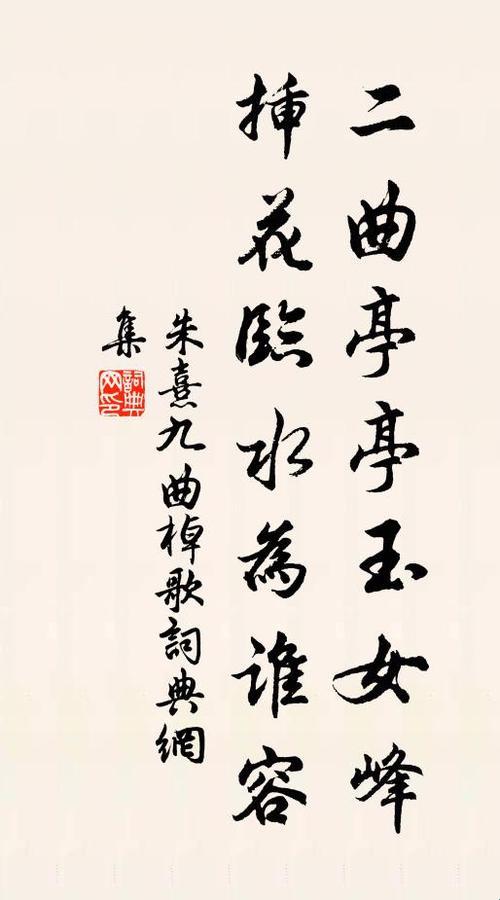 二曲亭亭玉女峰
插花臨水為誰容
朱熹九曲棹歌詞典網
集
詞典網印